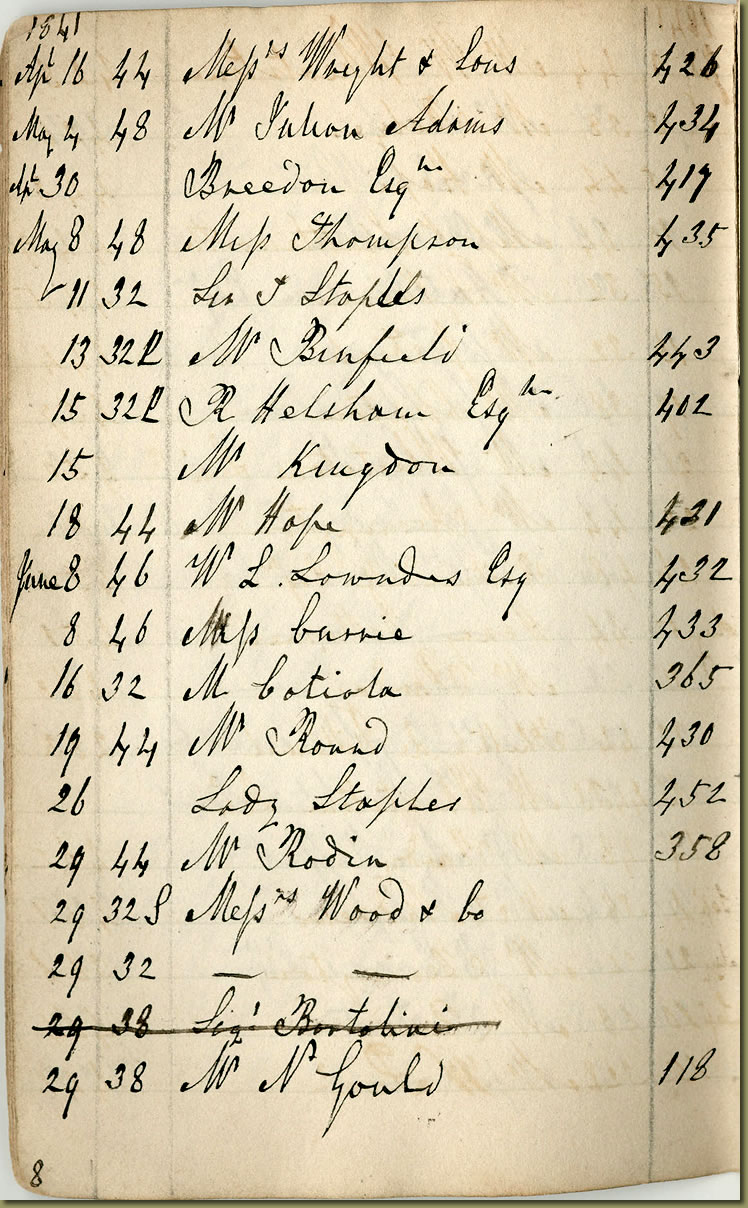 1841
Apl 16 44 Messrs Wright & Sons 426
May 4 48 Mr Julian Adams 434
Apl 30 Breedon Esqre 417
May 8 48 Miss Thompson 435
11 32 Sir T Staples
13 32P Mr Binfield 443
15 32P R Helsham Esqre 402
15 Mr Kingdon
18 44 Mr Hope 431
June 8 46 W L. Lowndes Esq 432
8 46 Miss Currie 433
16 32 M Cotiola 365
19 44 Mr Round 430
26 Lady Staples 452
29 44 Mr Rodin 358
29 32S Messrs Wood & Co
29 32 — —
29 38 Sigr Bortolini
29 38 Mr Ns Gould 118
8